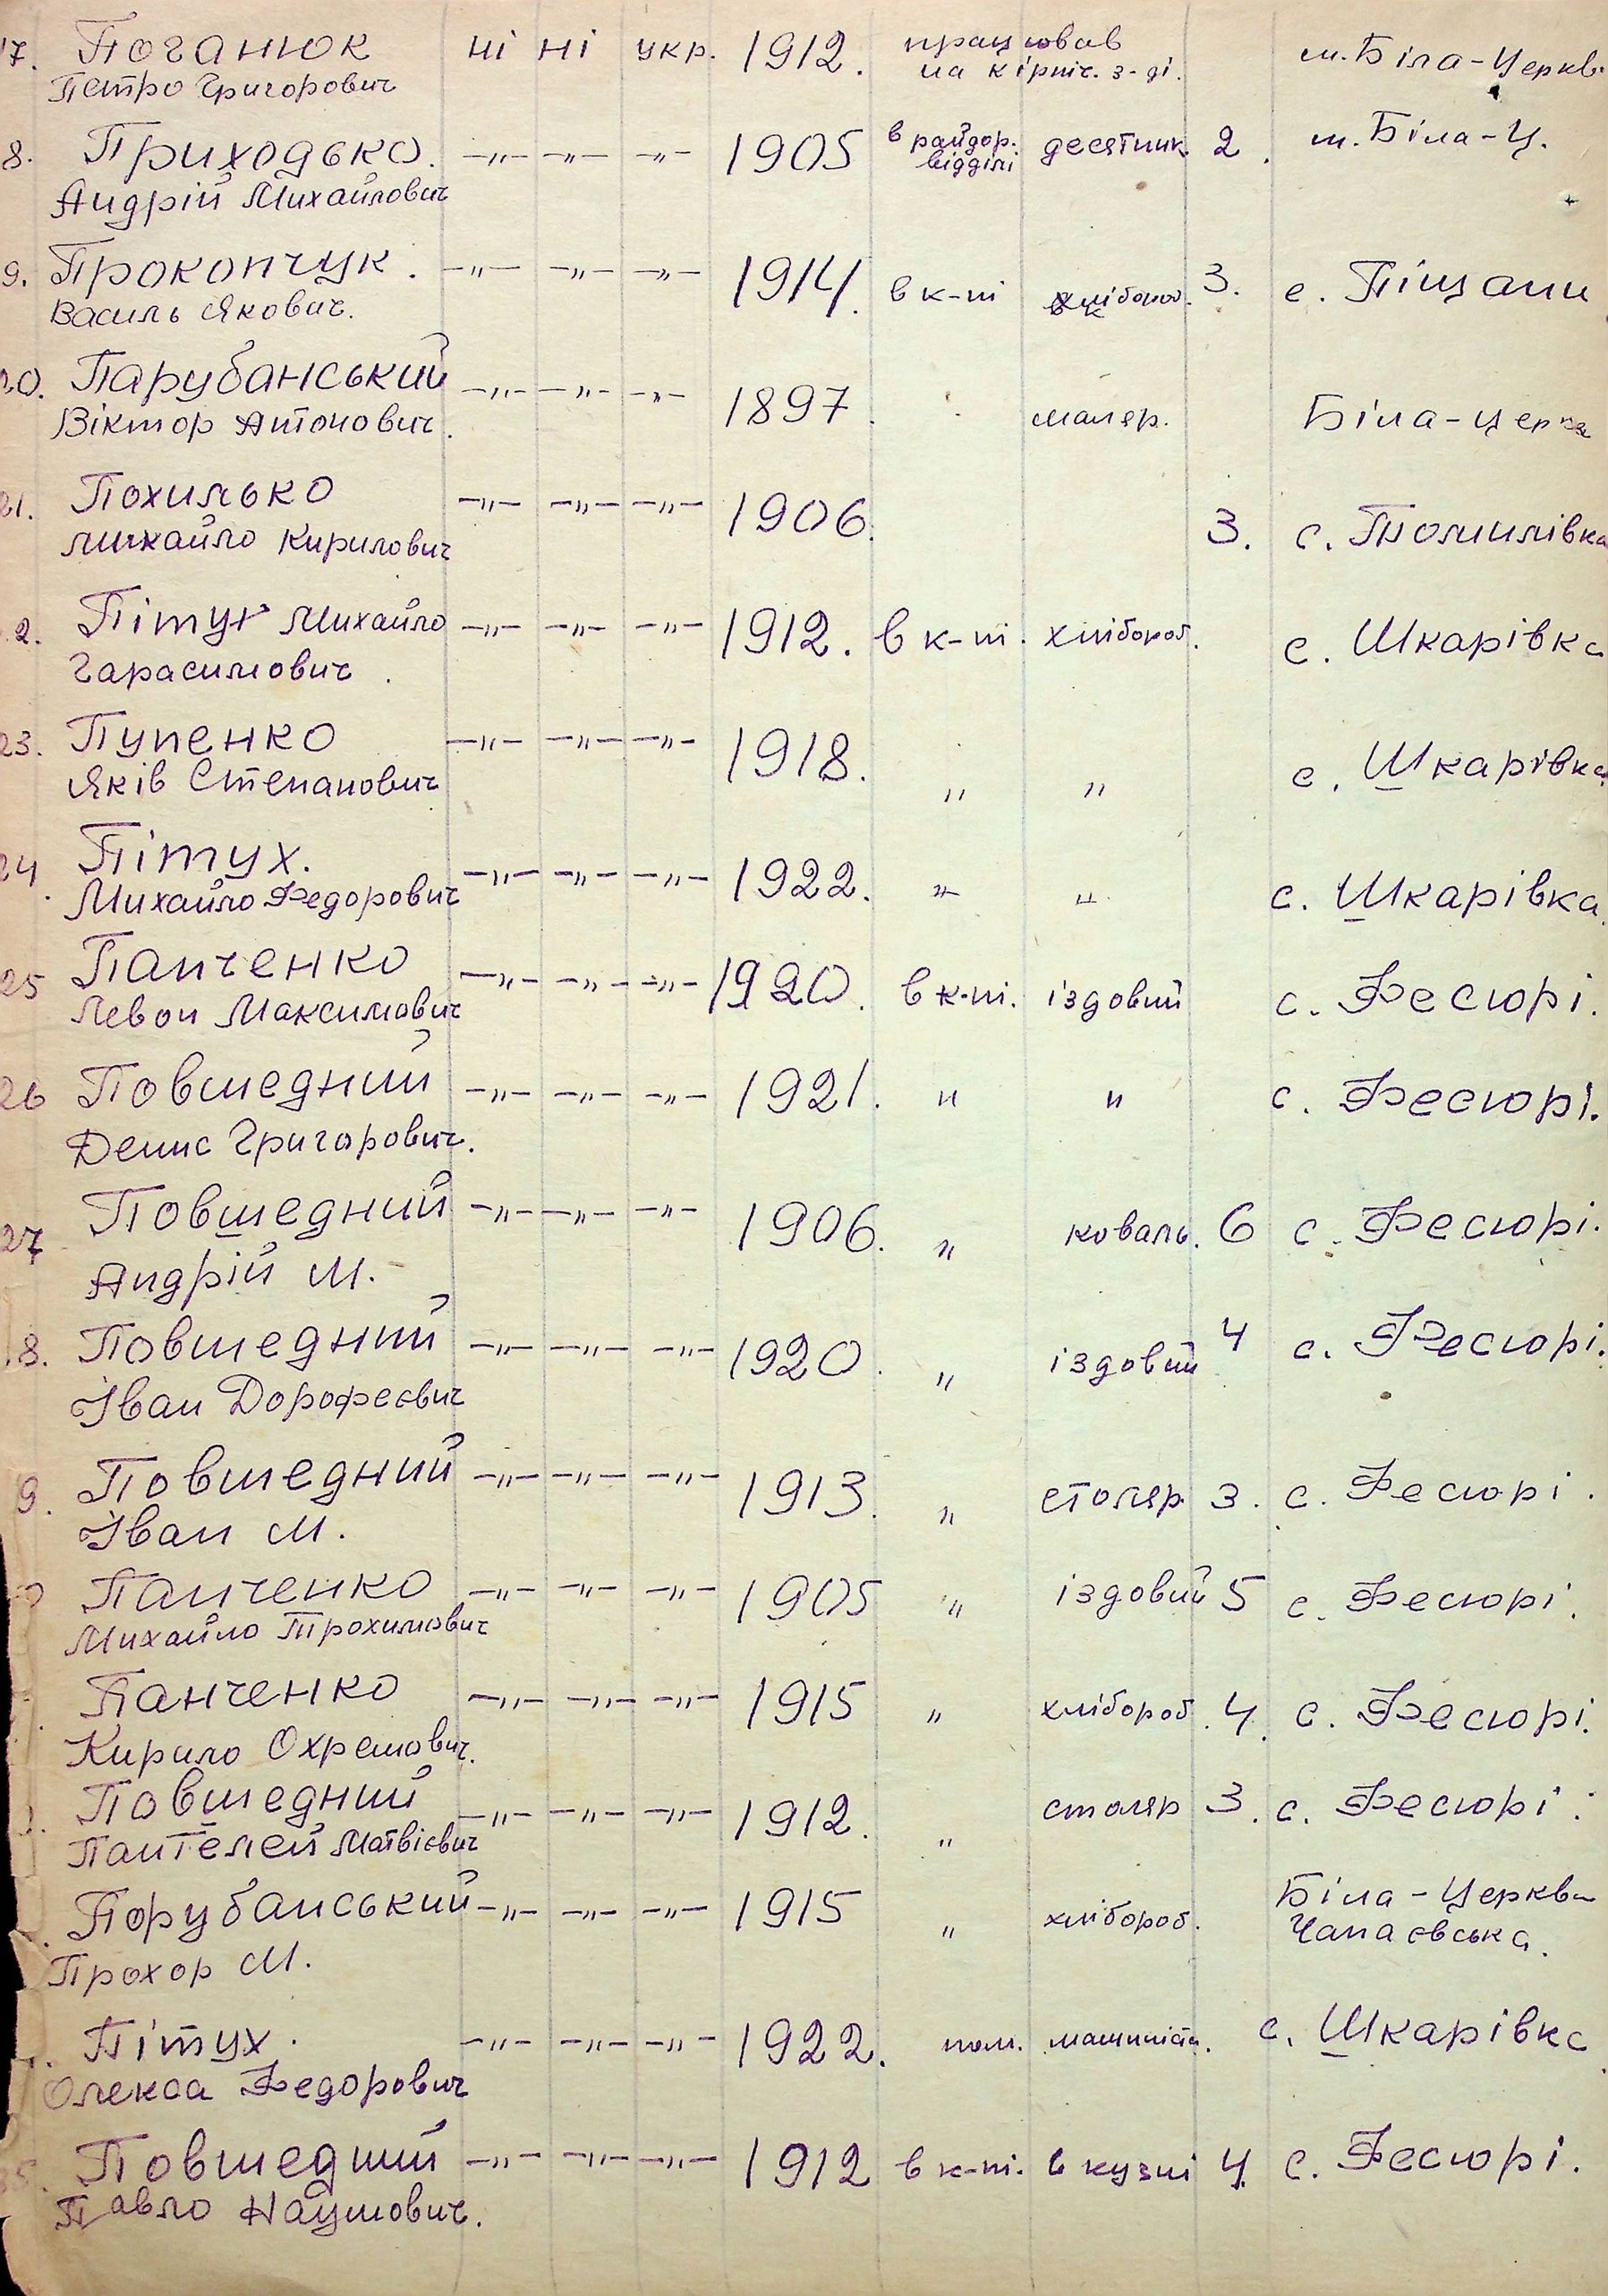 17. Поганюк ні ні укр. 1912. працював м. Біла-Церкв
Петро Григорович на кірпіч. з-ді.
8. Приходько. -"- -"- -"- 1905 в райдор. десятник 2. м. Біла-Ц.
Андрій Михайлович відділі
9. Прокопчук. -"- -"- -"- 1914. в к-пі хлібороб. 3. с. Піщани
Василь Якович.
20. Парубанський -"- -"- -"- 1897. маляр. Біла-Церква
Віктор Антонович.
21. Похилько -"- -"- -"- 1906. 3. с. Томилівка
Михайло Кирилович
2. Пітух Михайло -"- -"- -"- 1912. в к-пі. хлібороб. с. Шкарівка
Гарасимович.
23. Пупенко -"- -"- -"- 1918. " " с. Шкарівка
Яків Степанович
24. Пітух. -"- -"- -"- 1922. -"- -"- с. Шкарівка.
Михайло Федорович
25 Панченко -"- -"- -"- 1920. в к-пі. їздовий с. Фесюрі.
Левон Максимович
26 Повшедний -"- -"- -"- 1921. " " с. Фесюрі.
Денис Григорович.
27 Повшедний -"- -"- -"- 1906. " коваль. 6 с. Фесюрі.
Андрій М.
8. Повшедний -"- -"- -"- 1920. " їздовий 4 с. Фесюрі.
Іван Дорофеєвич
9. Повшедний -"- -"- -"- 1913. " столяр 3. с. Фесюрі.
Іван М.
Панченко -"- -"- -"- 1905 " їздовий 5 с. Фесюрі.
Михайло Трохимович
Панченко -"- -"- -"- 1915 " хлібороб. 4. с. Фесюрі.
Кирило Охремович.
Повшедний -"- -"- -"- 1912. " столяр 3. с. Фесюрі.
Пантелей Матвієвич
Порубанський -"- -"- -"- 1915 " хлібороб. Біла-Церква
Прохор М. Чапаєвська.
Пітух. -"- -"- -"- 1922. пом. машиніста. с. Шкарівка
Олекса Федорович
35. Повшедний -"- -"- -"- 1912 в к-пі. в кузні 4. с. Фесюрі.
Павло Наумович.